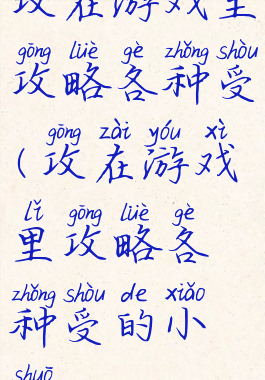 攻在游戏里
gōng lüè gè zhǒng shòu
攻略各种受
gōng zài yóu xì
(攻在游戏
lǐ gōng lüè gè
里攻略各
zhǒng shòu de xiǎo
种受的小
shuō